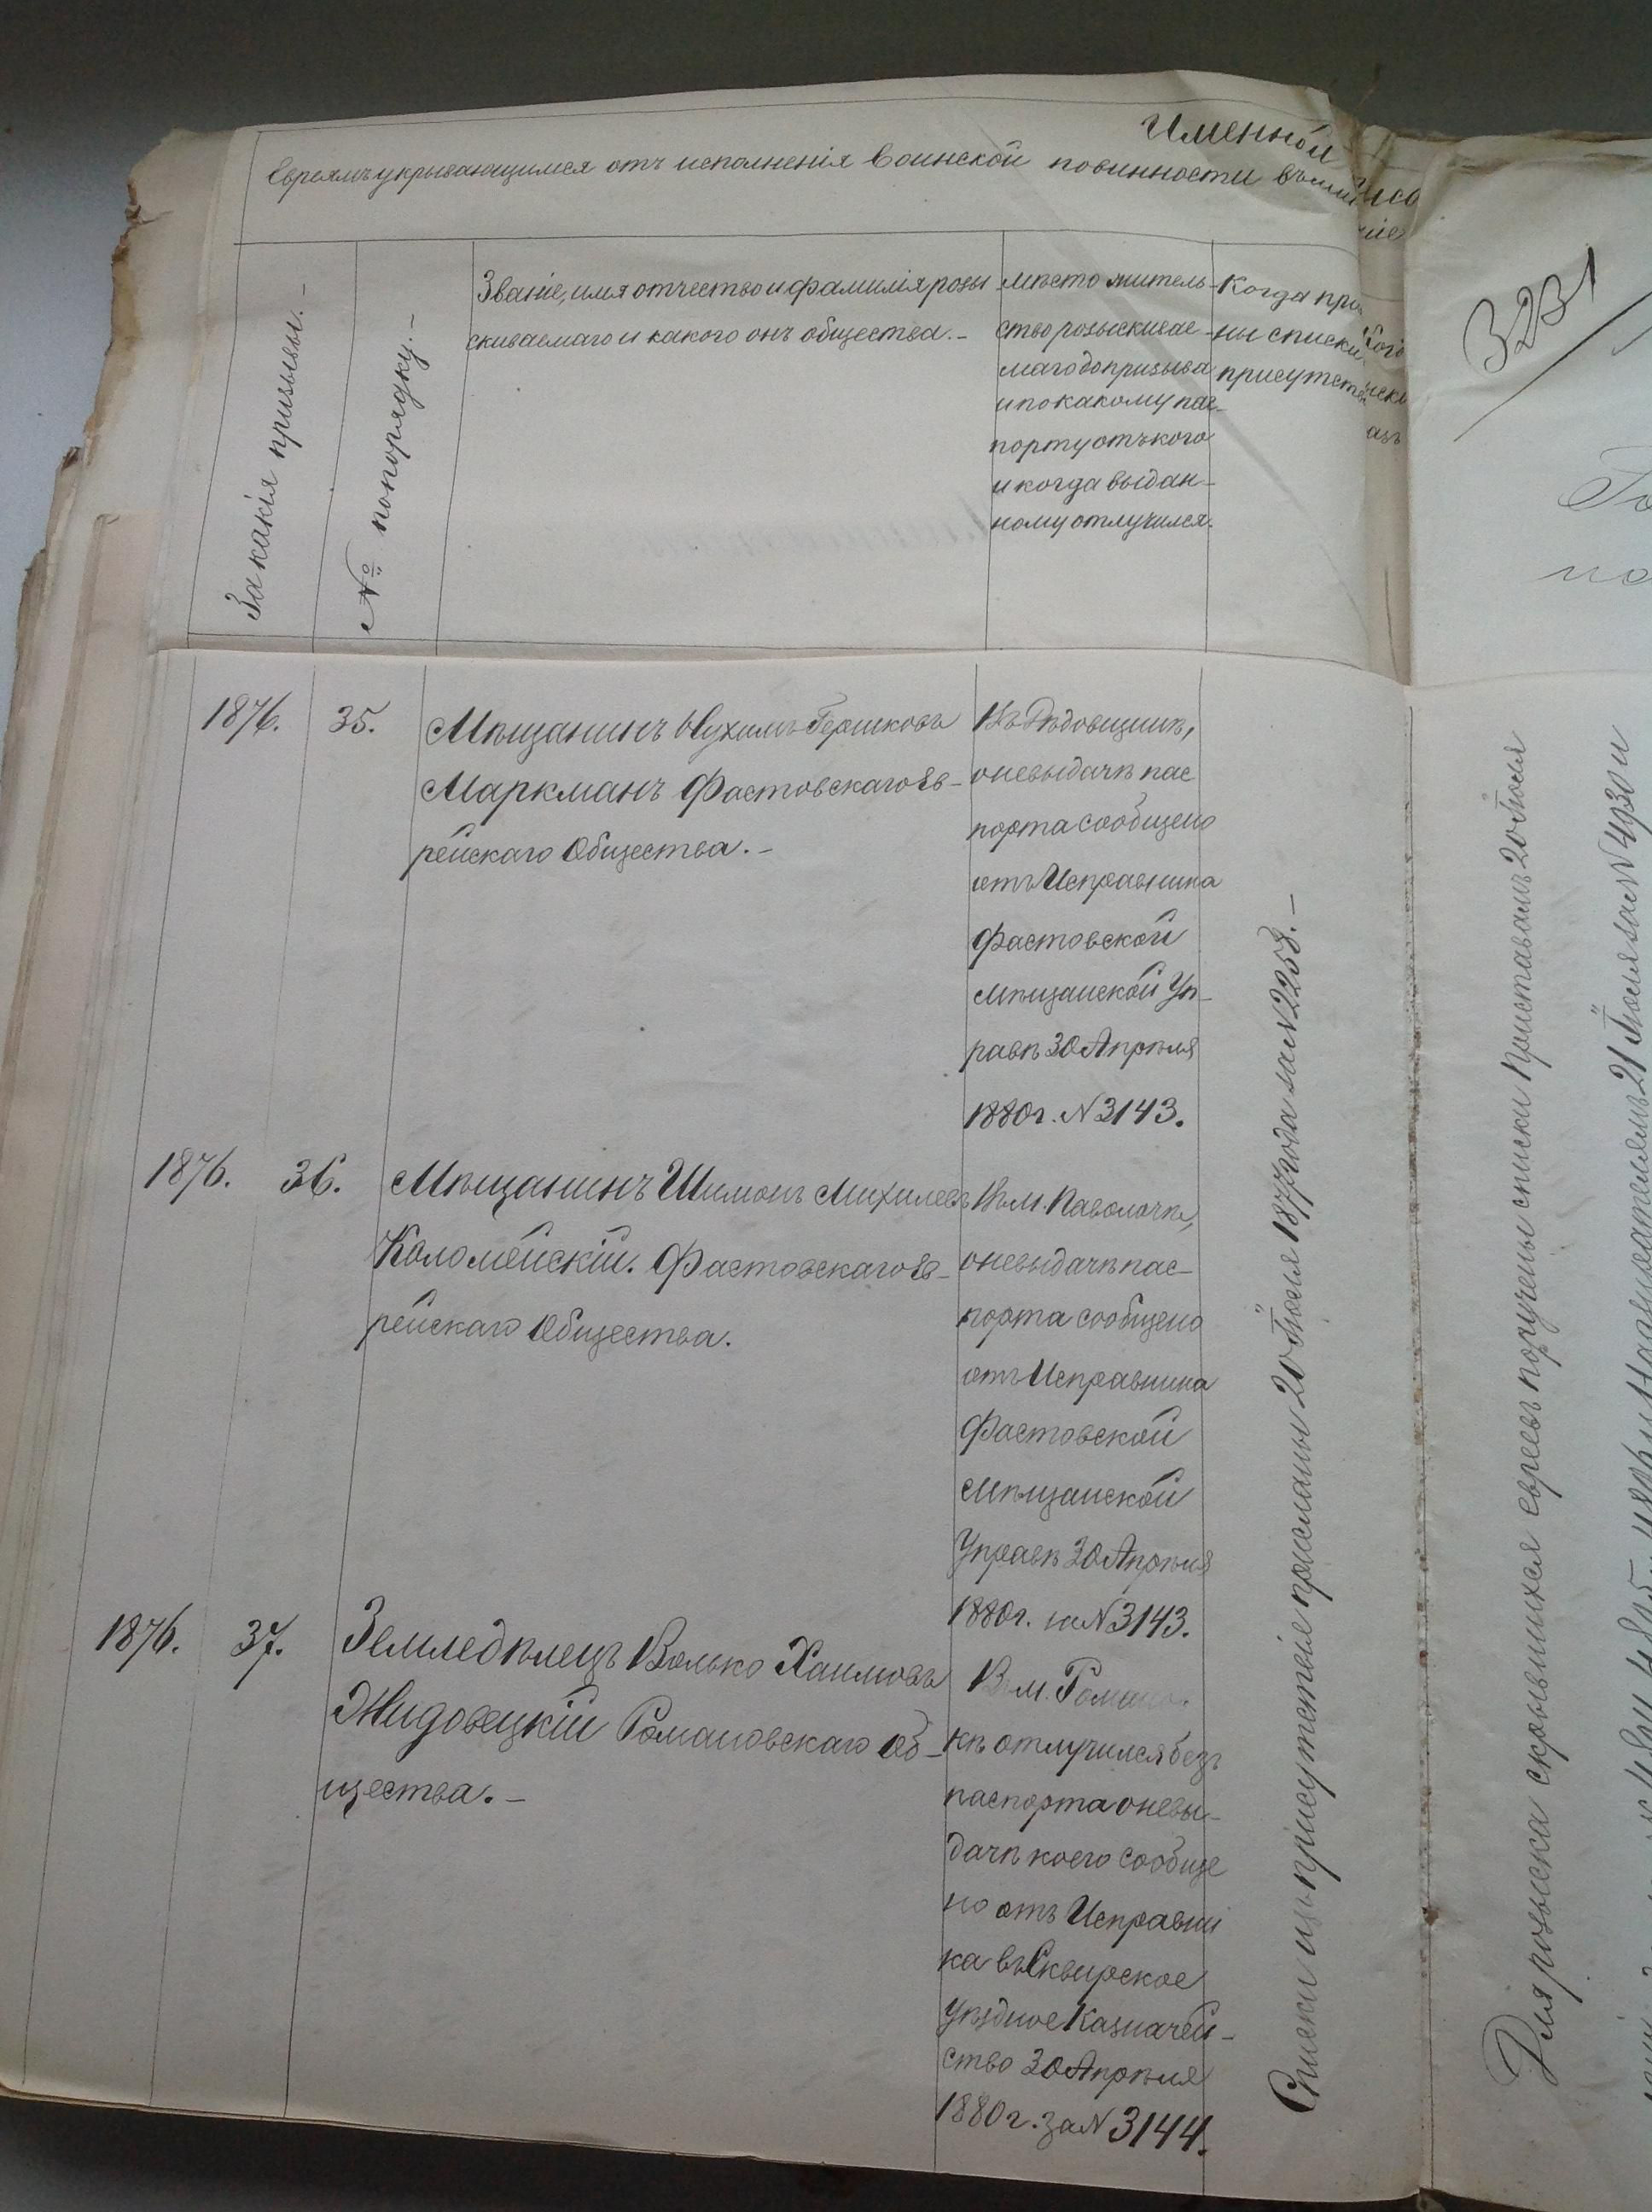 Именной
Евреямъ укрывающимся отъ исполненія воинской повинности
За какія призывы. –
№ попорядку. –
Званіе, имя отчество и фамилія розы
скиваемаго и какого онъ общества. –
мѣсто житель-
ство розыскивае-
маго до призыва
и по какому пас-
порту отъ кого
и когда выдан-
ному отлучился.
Когда
ны списки
присутств
323
1876.
35.
Мѣщанинъ Нухимъ Гершковъ
Маркманъ Фастовскаго Ев-
рейскаго Общества. –
Въ Дѣдовщинѣ,
о невыдачѣ пас
порта сообщено
отъ Исправника
Фастовской
мѣщанской Уп-
равѣ 30 Апрѣля
1880 г. N 3143.
1876.
36.
Мѣщанинъ Шимонъ Михилевъ
Коломейскій. Фастовскаго Ев-
рейскаго Общества.
Въ м. Паволочѣ,
о невыдачѣ пас-
порта сообщено
отъ Исправника
Фастовской
мѣщанской
Управѣ 30 Апрѣля
1880 г. за N 3143.
1876.
37.
Земледѣлецъ Волько Хаимовъ
Жидовецкій Романовскаго Об-
щества. –
В м. Романо.
кѣ отлучился безъ
паспорта о невы-
дачѣ коего сообще
но отъ Исправни
ка въ Сквирское
Уѣздное Казначей-
ство 30 Апрѣля
1880 г. за N 3144.
Списки изъ присутствія присланы 20 Іюля 1877 года за N 2258. –
Для розыска скрывшихся евреевъ поручены списки Приставамъ 20 Іюля
21 Іюля за N 4930 и